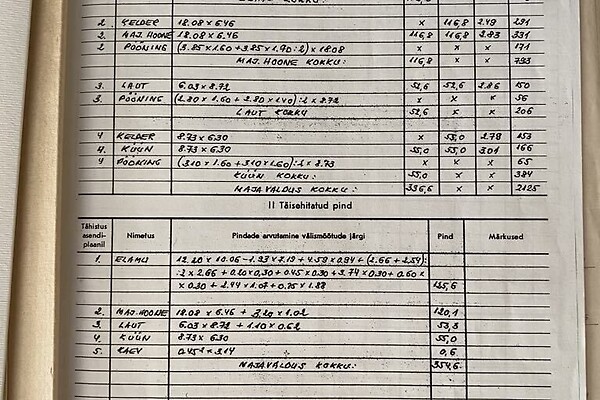 2. KELDER 18.08 x 6.46 x 116,8 2.49 291
2. MAJ. HOONE 18.08 x 6.46 116,8 116,8 2.83 331
2 PÖÖNING (3.85x1.60+3.85x1.90:2) x 18.08 x x x 171
MAJ. HOONE KOKKU: 116,8 x x 793
3. LAUT 6.03 x 8.72 52,6 52,6 2.86 150
3. PÖÖNING (2.80 x 1.60 + 2.80 x 1.40):2 x 8.72 x x x 56
LAUT KOKKU 52,6 x x 206
4 KELDER 8.73 x 6.30 x 55,0 2.78 153
4. KÜÜN 8.73 x 6.30 55,0 55,0 3.01 166
4 PÖÖNING (3.10 x 1.60 + 3.10 x 1.60):2 x 8.73 x x x 65
KÜÜN KOKKU: 55,0 x x 384
MAJAVALDUS KOKKU: 336,6 x x 2125
II Täisehitatud pind
Tähistus asendi- plaanil Nimetus Pindade arvutamine välismõõtude järgi Pind Märkused
1. ELAMU 12.20 x 10.06 - 1.93 x 7.19 + 4.59 x 0.94 + (2.66 + 2.54):
:2 x 2.66 + 0.20 x 0.30 + 0.45 x 0.30 + 3.74 x 0.30 + 0.60 x
x 0.30 + 2.44 x 1.07 + 0.75 x 1.88 125,6
2. MAJ. HOONE 18.08 x 6.46 + 3.20 x 1.02 120,1
3. LAUT 6.03 x 8.72 + 1.10 x 0.62 53,3
4. KÜÜN 8.73 x 6.30 55,0
5. KAEV 0.45² x 3.14 0,6
MAJAVALDUS KOKKU: 354,6